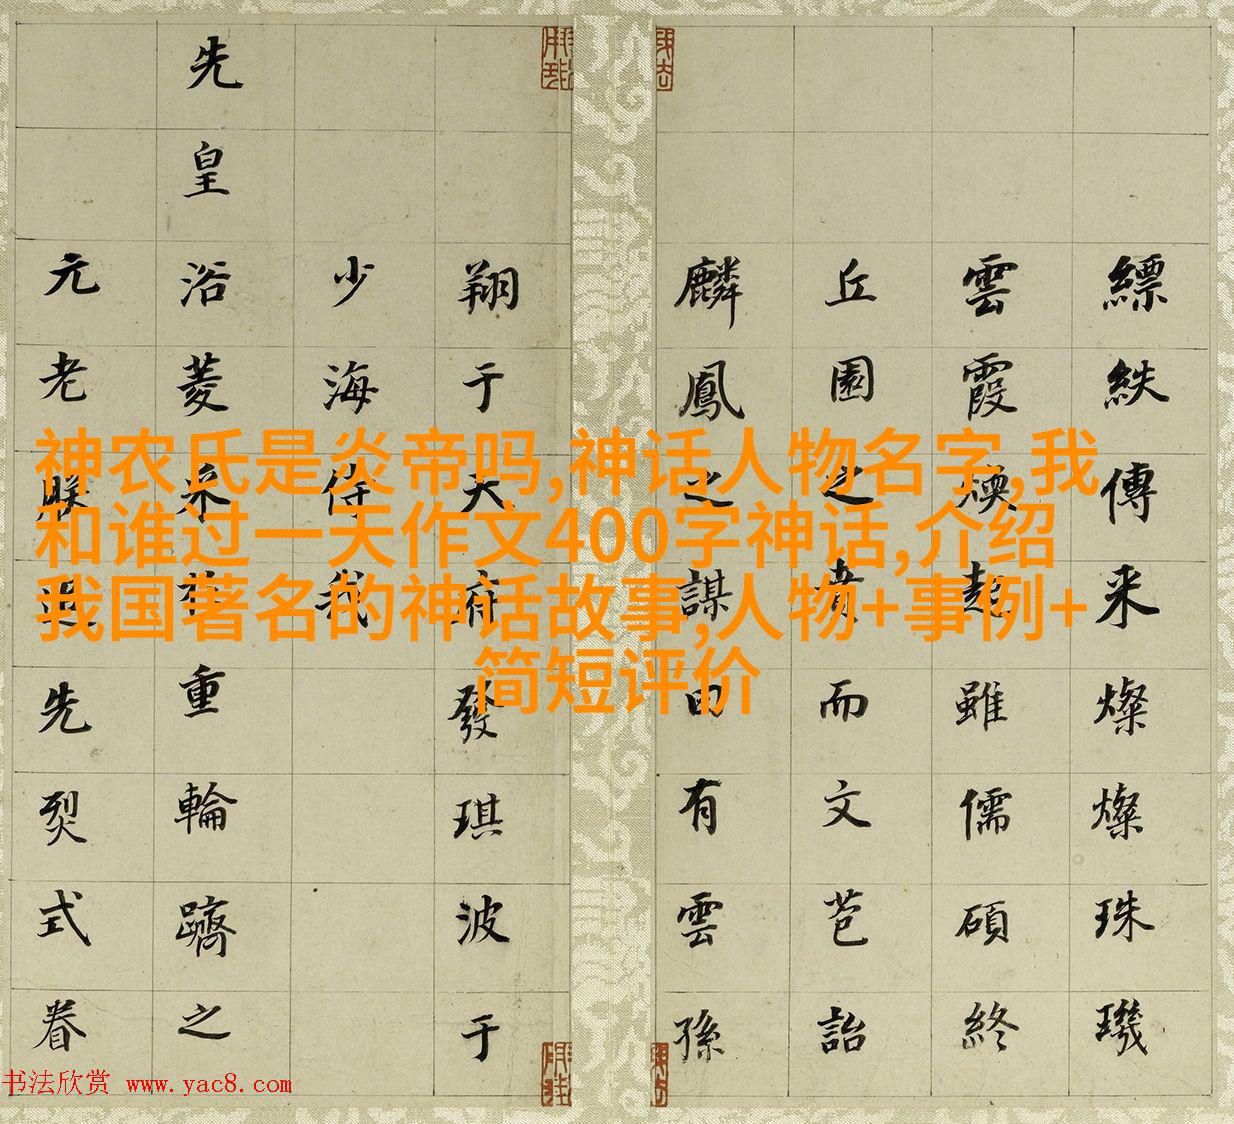 神农氏是炎帝吗,神话人物名字,我
和谁过一天作文400字神话,介绍
我国著名的神话故事,人物+事例+
简短评价
縹紩傳采燦燦珠璣
雲霞煥起雖儒碩終
丘園之賁而文芭詒
麟鳳之謀由有雲孫
翔于天府發琪波于
少海侍我
先皇浴菱采重輪躋之
元老朕先烈式眷
书法欣赏 www.yac8.com